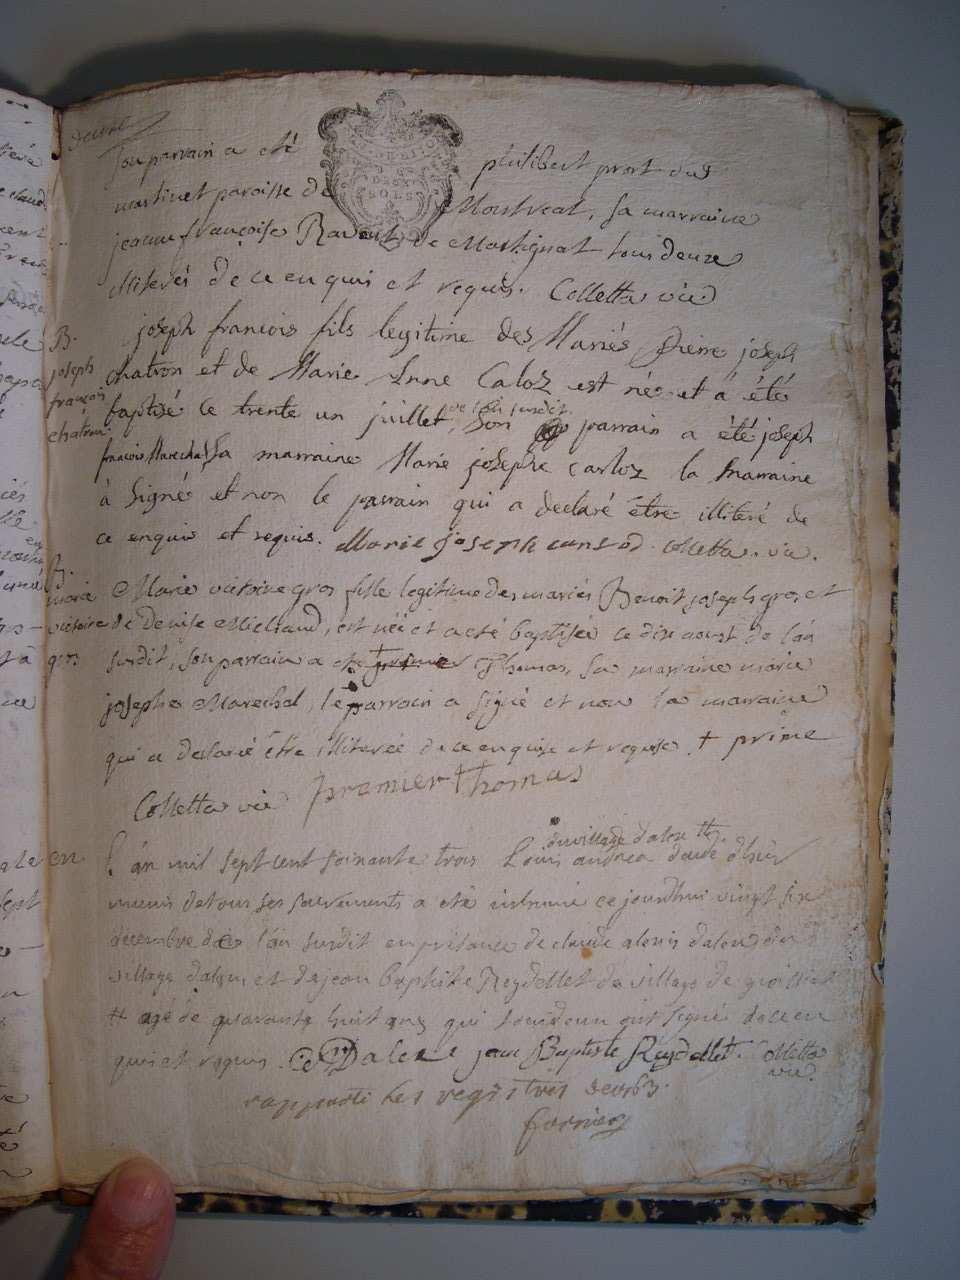 son parrain a eté philibert prost du
martinet paroisse de Montreal, sa marraine
jeanne françoise Ravout de Martignat tous deux
illiterés de ce enquis et requis. Colletta vic
B.
joseph
françois
chatron
joseph francois fils legitime des Mariés Pierre joseph
chatron et de Marie Anne Caloz est né et a été
baptisé ce trente un juillet, de l'an susdit. Son parrain a été joseph
francois Marechal, Sa marraine Marie josephe carloz la marraine
à signé et non le parrain qui a declaré être illiteré de
ce enquis et requis. Marie joseph colletta. vic.
B.
marie
victoire
gros
Marie victoire gros fille legitime des mariés Benoit joseph gros, et
de Denise Michaud, est née et a eté baptisée ce dix aoust de l'an
susdit, son parrain a eté Thomas, sa marraine marie
josephe Marechal, le parrain a signé et non la marraine
qui a declaré être illiterée de ce enquise et requise. + prime
Colletta vic premier thomas
du village d'alex ++
L'an mil sept cent soixante trois Louis andrea
munis de tous ses sacrements a eté inhumé ce jourdhui vingt six
decembre de l'an susdit en presence de claude alexis dalex du
village d'alex, et de jean baptiste Reydellet du village de
++ agé de quarante huit ans qui tous deux ont signé de ce en
quis et requis. C Dalex jean Baptiste Reydellet. Colletta
vic.
rapporté les registres de 1763.